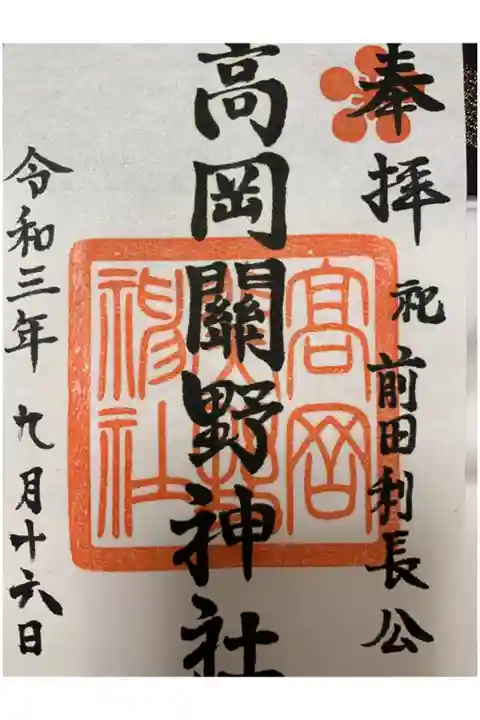 奉拝
祀 前田利長公
高岡關野神社
高岡
關野
神社
令和三年 九月十六日